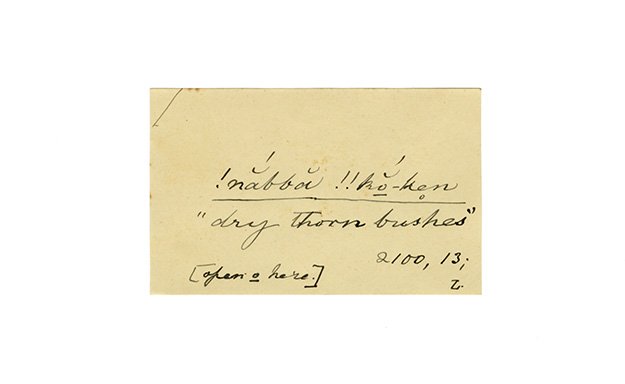 !nắbbă !!kŏ̱́-hen̥
"dry thorn bushes"
2100, 13;
[open o̱ here.]
Z.